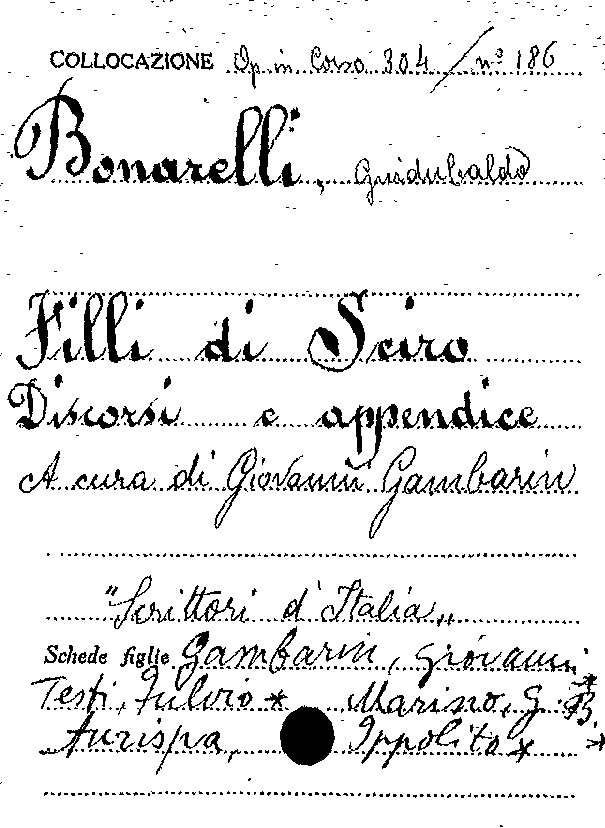 COLLOCAZIONE Op. in Corso 304 / nº 186
Bonarelli, Guidubaldo
Filli di Sciro
Discorsi e appendice
A cura di Giovanni Gambarin
"Scrittori d'Italia„
Schede figlie Gambarin, Giovanni *
Testi, Fulvio * Marino, G. B. *
Aurispa, Ippolito *